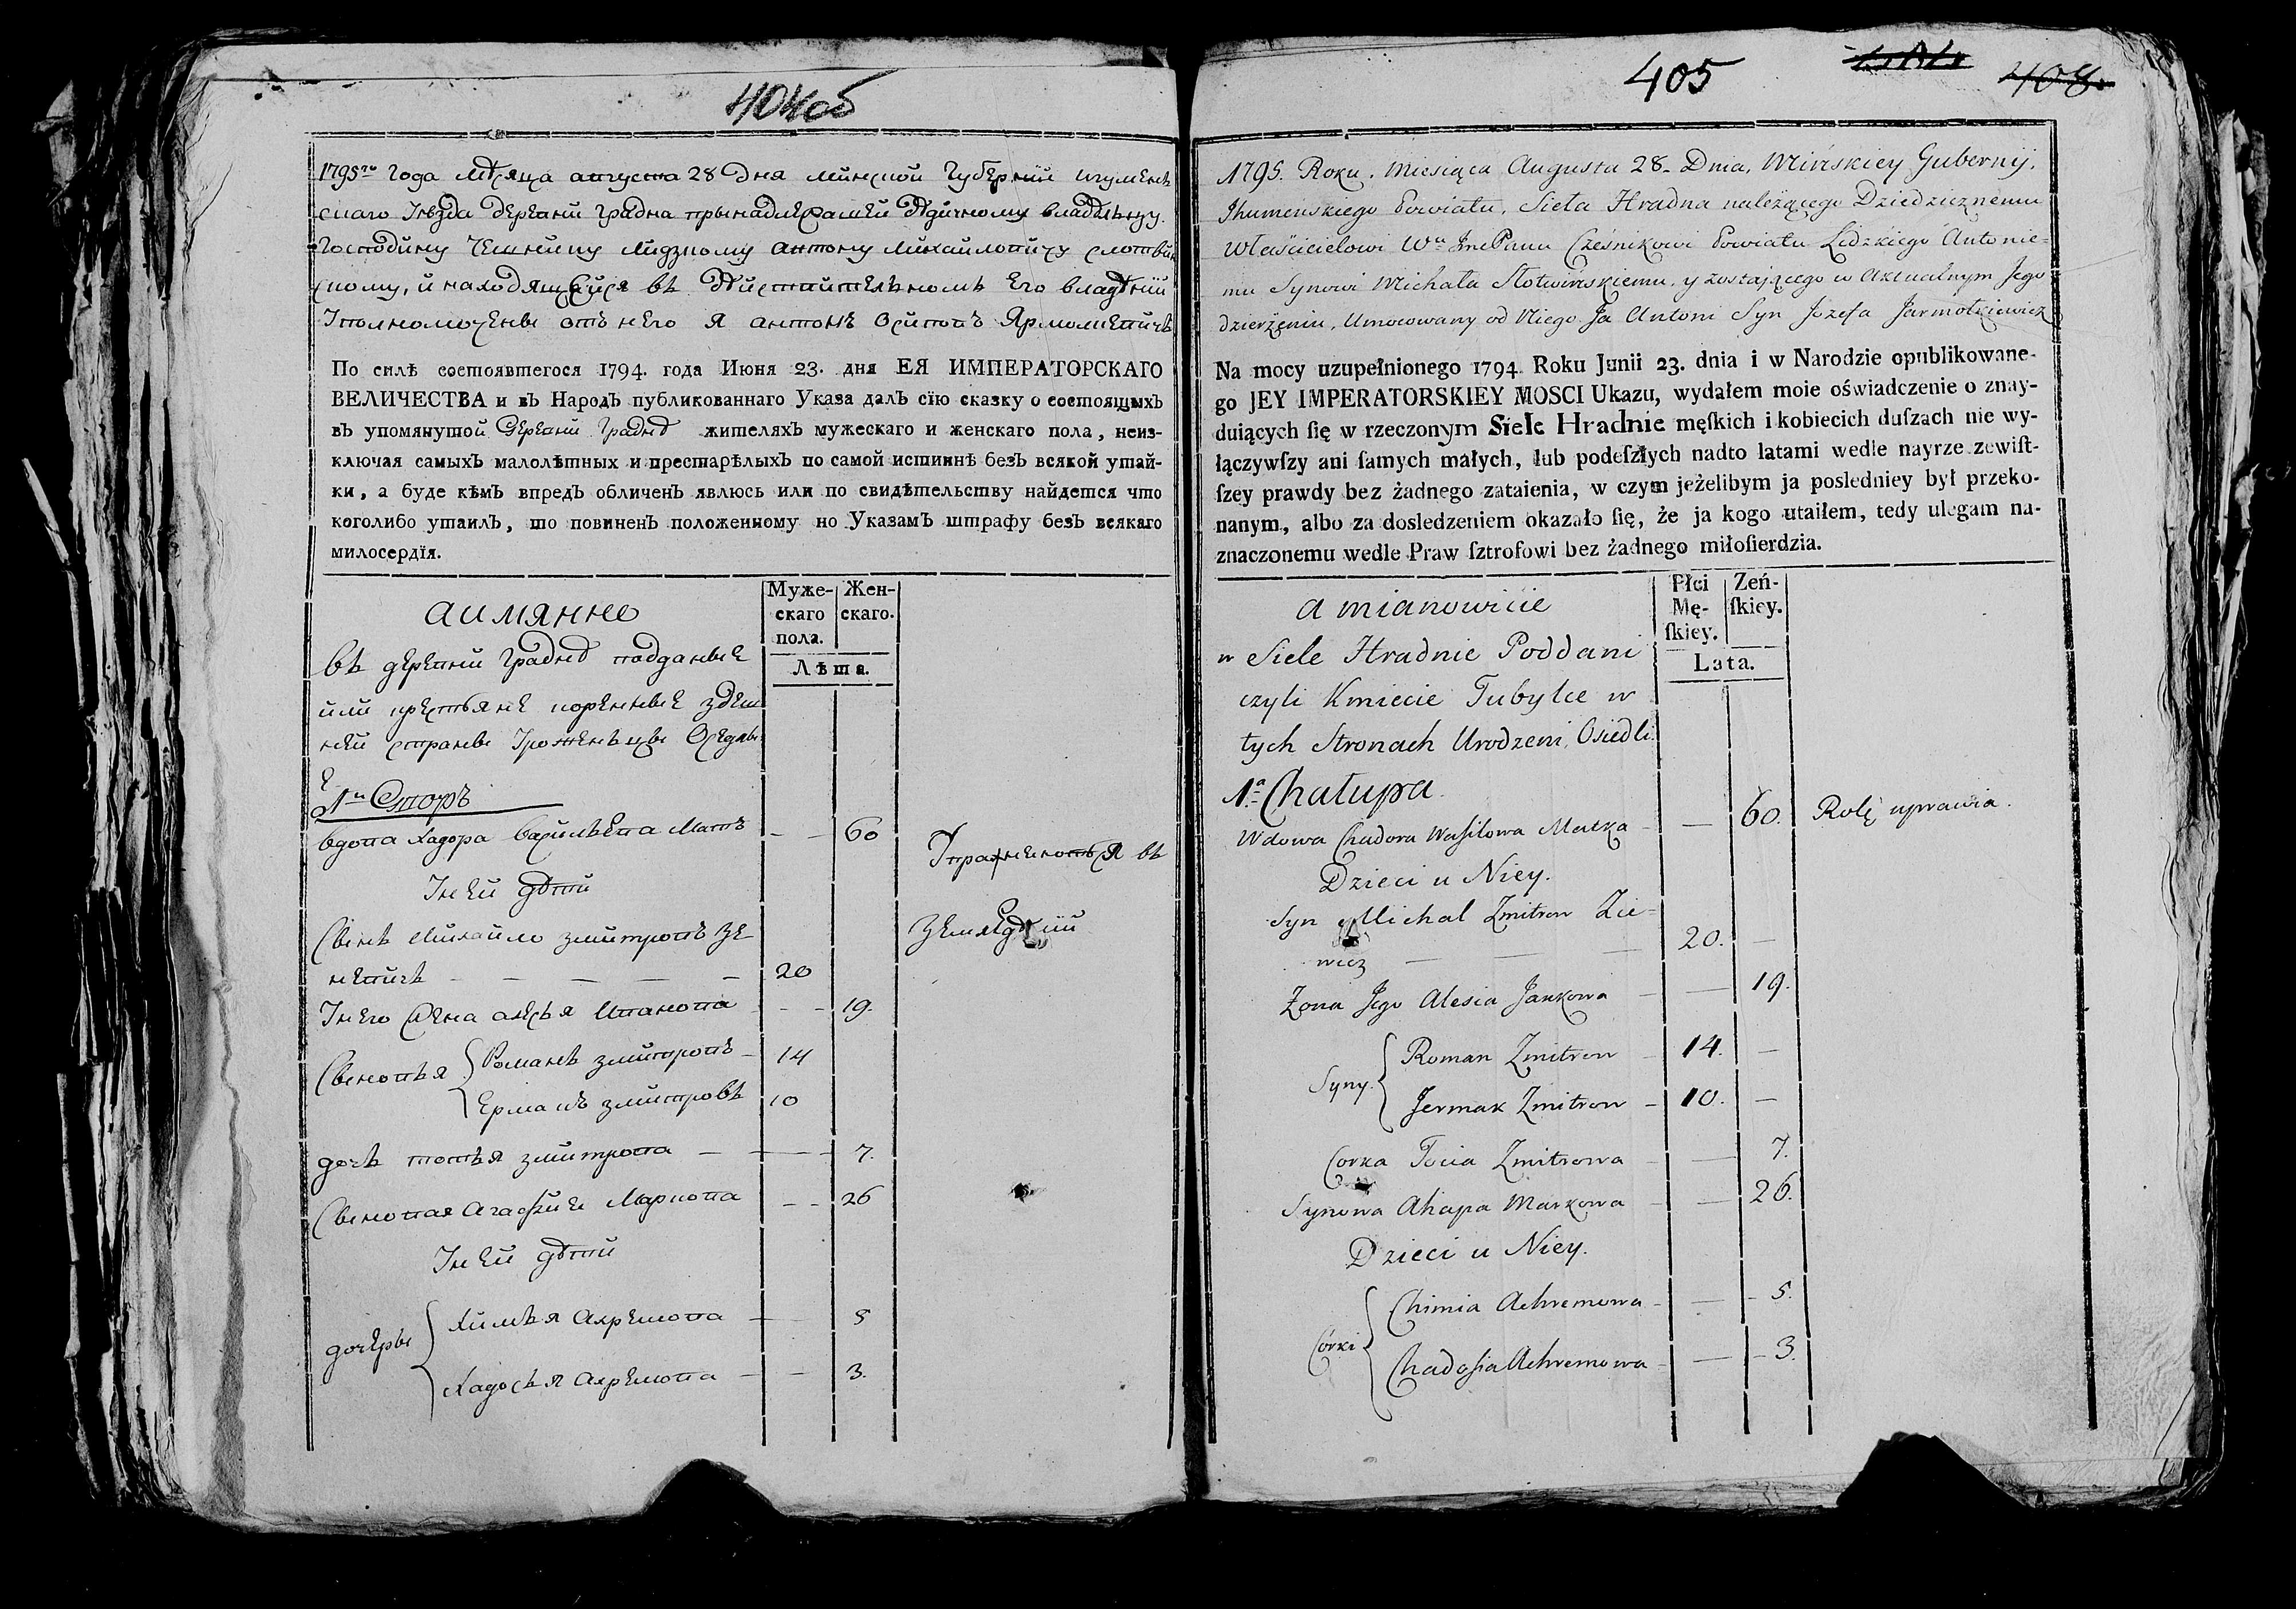 404об
1795го Года Мѣсяца августа 28 Дня минской Губернии игуменъ
скаго Уѣзда Деревни Градна принадлежащей Дѣдичному владѣльцу
Господину Чешнику Лидзкому антону Михайловичу слотвин
скому, и находящейся въ Дѣйствительномъ Его владѣнии
Уполномоченны отъ него Я антонъ Осиповъ Ярмолкевичъ
По силѣ состоявшегося 1794. года Июня 23. дня ЕЯ ИМПЕРАТОРСКАГО
ВЕЛИЧЕСТВА и въ Народъ публикованнаго Указа далъ сїю сказку о состоящыхъ
въ упомянутой Деревни Граднѣ жителяхъ мужескаго и женскаго пола, неиз-
ключая самыхъ малолѣтных и престарѣлыхъ по самой истиннѣ безъ всякой утай-
ки, а буде кѣмъ впредъ обличенъ явлюсь или по свидѣтельству найдется что
коголибо утаилъ, то повиненъ положенному по Указамъ штрафу безъ всякаго
милосердїя.
Муже- Жен-
скаго скаго.
пола.
Лѣта.
аимянно
въ деревни Граднѣ подданые
или крестьяне коренные здеш
ней страны Уроженьцы Оседлы
е
1й Дворъ
вдова Хадора василѣва Мать - - 60 Упражнеютъся въ
Унеи дѣти
Сынъ Михайло змитровъ зе земледѣлии
невичъ - - - - - 20
Унего жена алесья Иванова - - 19.
Сыновья { Романъ змитровъ - 14
Ермакъ змитровъ 10
дочь товѣя змитрова - - - 7.
Сыновая Агафия Маркова - - 26
Унеи дѣти
дочеры { Химѣя Ахремова - - 5
Хадосья Ахремова - - 3.
405
408
1795. Roku, Miesiąca Augusta 28. Dnia, Mińskiey Gubernij,
Jhumeńskiego Powiatu, Sieła Hradna należącego Dziedzicznemu
Właścicielowi Wu JmcPanu Cześnikowi Powiatu Lidzkiego Antonie=
mu Synowi Michała Słotwińskiemu, y zostaiącego w Aktualnym Jego
dzierżeniu, Umocowany od Niego Ja Antoni Syn Józefa Jarmołkiewicz
Na mocy uzupełnionego 1794 Roku Junii 23. dnia i w Narodzie opublikowane-
go JEY IMPERATORSKIEY MOSCI Ukazu, wydałem moie oświadczenie o znay-
duiących ſię w rzeczonym Siele Hradnie męſkich i kobiecich duſzach nie wy-
łączywſzy ani ſamych małych, lub podeſzłych nadto latami wedle nayrze zewiſt-
ſzey prawdy bez żadnego zataienia, w czym jeżelibym ja posledniey był przeko-
nanym, albo za dosledzeniem okazało ſię, że ja kogo utaiłem, tedy ulegam na-
znaczonemu wedle Praw ſztrofowi bez żadnego miłoſierdzia.
Płci Zeń-
Mę- ſkiey.
ſkiey.
Lata.
a mianowicie
w Siele Hradnie Poddani
czyli Kmiecie Tubylce w
tych Stronach Urodzeni, Osiedli.
1.a Chałupa.
Wdowa Chadora Wasilowa Matka - - 60. Rolę uprawia.
Dzieci u Niey.
Syn Michal Zmitrow Zie=
wicz - - - 20. -
Zona Jego Alesia Jankowa - - 19.
Syny. { Roman Zmitrow - 14. -
Jermak Zmitrow - 10. -
Corka Tocia Zmitrowa - - 7.
Synowa Ahapa Markowa - - 26.
Dzieci u Niey.
Córki { Chimia Achremowa - - - 5.
Chadosia Achremowa - - - 3.